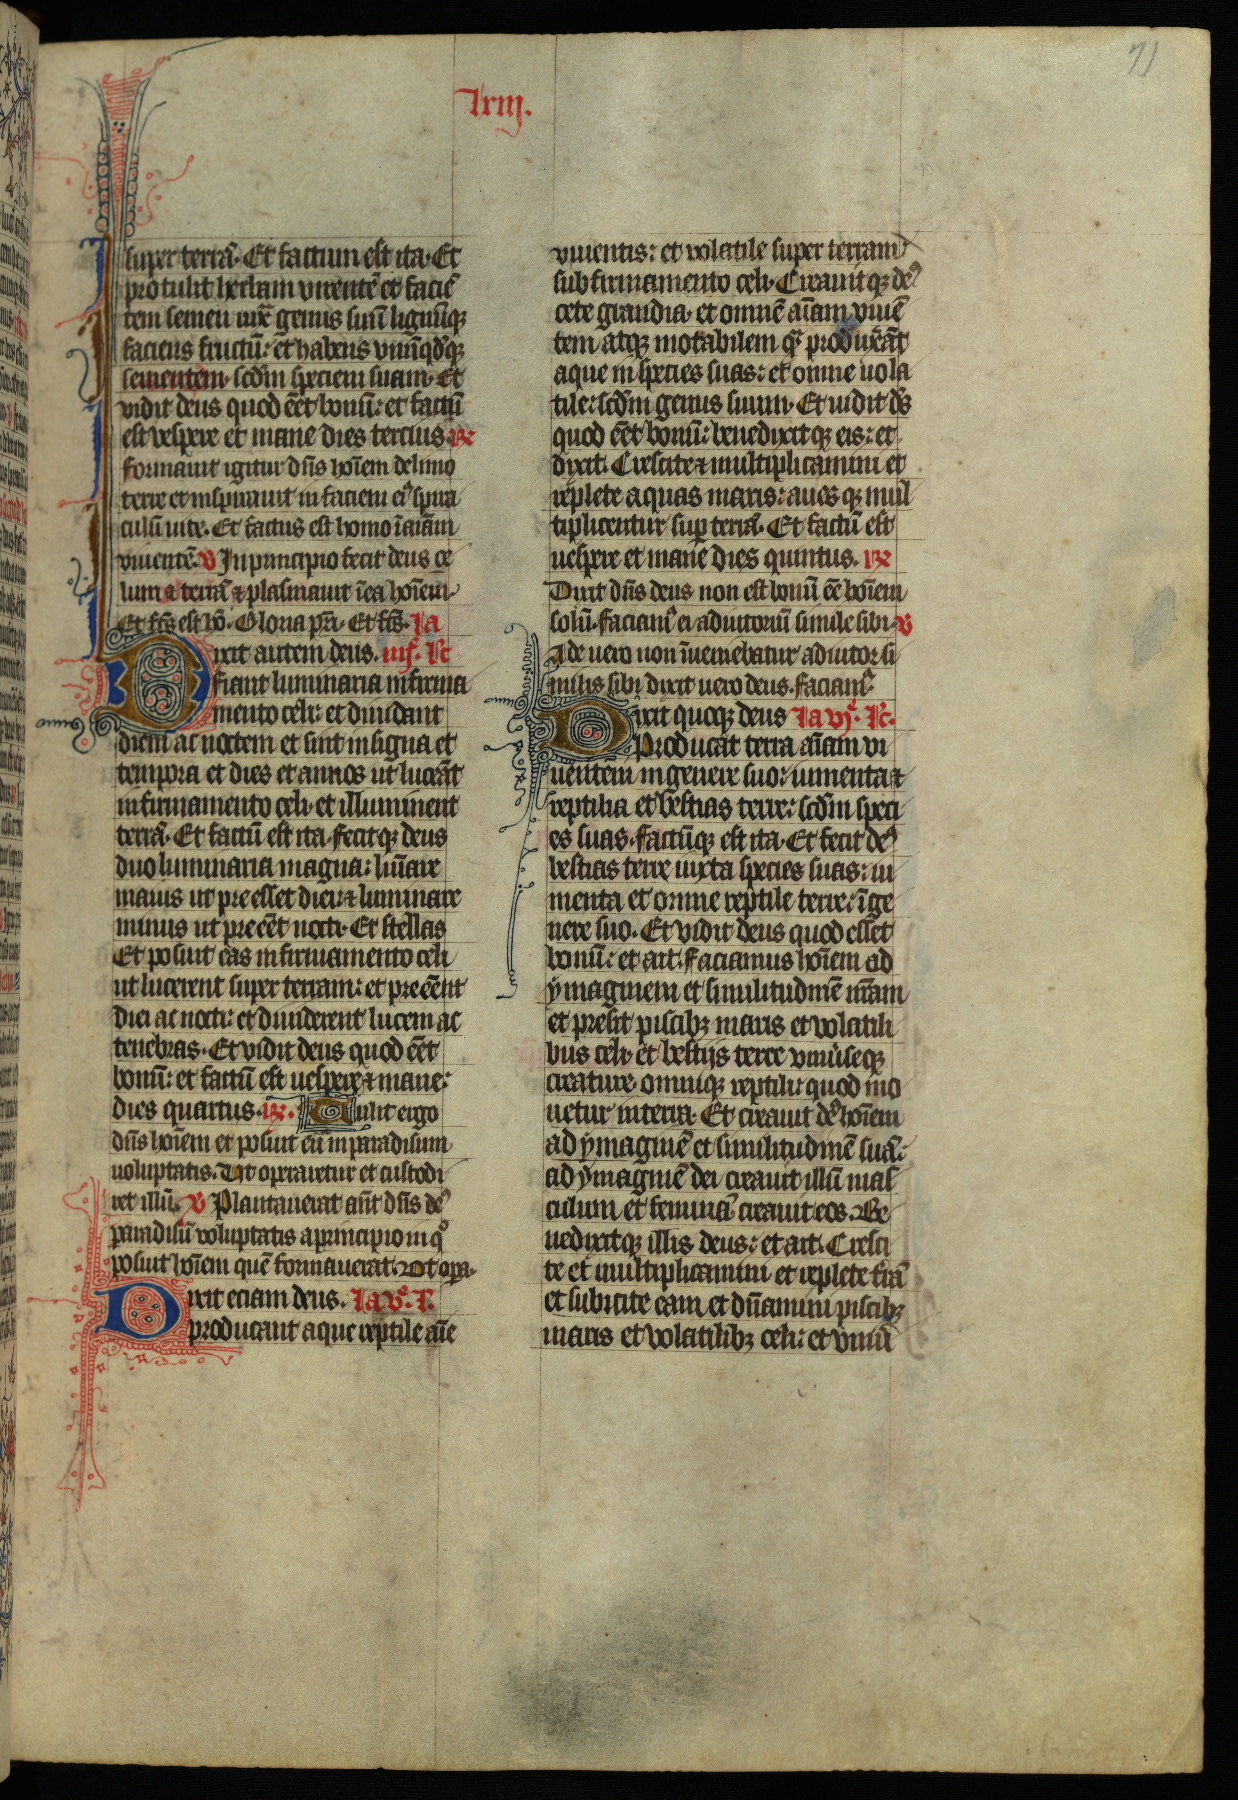 71
lxiij.
super terrā. Et factum est ita. Et
protulit herbam virentē et faciē
tem semen iuxͣ genus suū lignūqꝫ
faciens fructū: et habens vnūqdꝗꝫ
sementem. scd̄m speciem suam. Et
vidit deus quod eēt bonū: et factū
est vespere et mane dies tercius ℞
formauit igitur dn̄s hoīem de limo
terre et inspirauit in faciem eiꝰ spira
culū uite. Et factus est homo ī aīam
viuentē. v In principio fecit deus ce
lum ⁊ terrā ⁊ plasmauit ī ea hoīem
Et fc̄s est hō. Gloria pr̄i. Et fc̄s. la
Dixit autem deus. iiijᵃ. lc̄
fiant luminaria in firma
mento celi: et diuidant
diem ac noctem et sint in signa et
tempora et dies et annos ut luceāt
in firmamento celi. et illuminent
terrā. Et factū est ita. fecitqꝫ deus
duo luminaria magna: lum̄are
maius ut preesset diei: ⁊ luminare
minus ut preeēt nocti. Et stellas
Et posuit eas in firmamento celi
ut lucerent super terram: et preeēnt
diei ac nocti: et diuiderent lucem ac
tenebras. Et vidit deus quod eēt
bonū: et factū est uespere ⁊ mane:
dies quartus. ℞. Tulit ergo
dn̄s hoīem et posuit eū in paradisum
uoluptatis. Ut operaretur et custodi
ret illū. v Plantauerat aūt dn̄s deꝰ
paradisū voluptatis a principio in qͦ
posuit hoīem quē formauerat. Ut opa.
Dixit eciam deus. la vᵃ. l.
producant aque reptile aīe
viuentis: et volatile super terram
sub firmamento celi. Creauitqꝫ deꝰ
cete grandia. et omnē aīam viuē
tem atqꝫ motabilem qͣ produxeāt
aque in species suas: et omne uola
tile: scd̄m genus suum. Et uidit ds̄
quod eēt bonū: benedixitqꝫ eis: et
dixit. Crescite ⁊ multiplicamini et
replete aquas maris: auesqꝫ mul
tiplicentur suꝑ terrā. Et factū est
uespere et mane dies quintus. ℞
Dixit dn̄s deus non est bonū eē hoīem
solū. faciamꝰ ei adiutoriū simile sibi. v
Ade uero non īueniebatur adiutor si
milis sibi dixit uero deus. faciamꝰ
Dixit quoqꝫ deus la vjᵃ. lc̄.
Producat terra aīam vi
uentem in genere suo: iumenta ⁊
reptilia et bestias terre: scd̄m speci
es suas. factūqꝫ est ita. Et fecit deꝰ
bestias terre iuxta species suas: iu
menta et omne reptile terre: ī ge
nere suo. Et vidit deus quod esset
bonū: et ait. faciamus hoīem ad
ymaginem et similitudinē nr̄am
et presit piscibꝫ maris et volatili
bus celi. et bestijs terre vniūseqꝫ
creature. omniqꝫ reptili: quod mo
uetur in terra. Et creauit deꝰ hoīem
ad ymaginē et similitudinē suā:
ad ymaginē dei creauit illū mas
culum et feminā creauit eos. Be
nedixitqꝫ illis deus: et ait. Cresci
te et multiplicamini et replete t̄rā
et subicite eam et dn̄amini piscibꝫ
maris et volatilibꝫ celi: et vniū